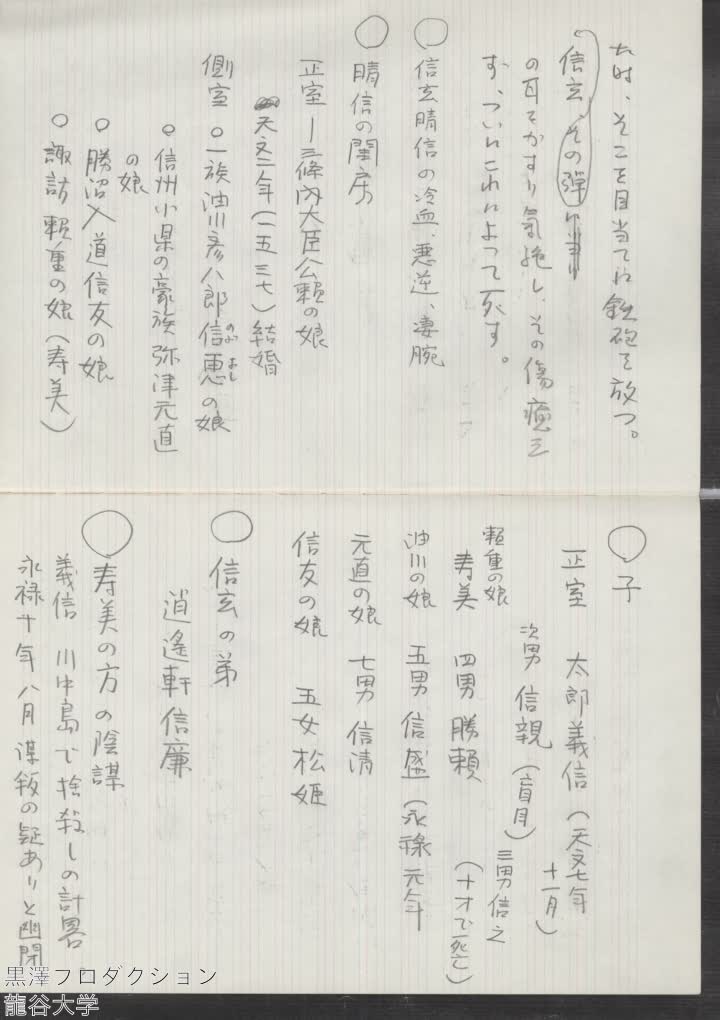 た時、そこを目当てに鉄砲を放つ。
信玄、その弾
の耳をかすり気絶し、その傷癒え
ず、ついにこれによって死す。
○信玄晴信の冷血、悪逆、凄腕
○晴信の閨房
正室ー三條内大臣公頼の娘
天文二年(一五三七)結婚
側室 ○一族油川彦八郎信恵の娘
のぶよし
○信州小県の豪族弥津元直
の娘
○勝沼入道信友の娘
○諏訪頼重の娘(寿美)
○子
正室 太郎義信(天文七年
十一月)
次男 信親(盲目)
三男信之
(十才で死亡)
頼重の娘
寿美 四男 勝頼
油川の娘 五男 信盛(永禄元年
元直の娘 七男 信清
信友の娘 五女 松姫
○信玄の弟
逍遙軒信廉
○寿美の方の陰謀
義信 川中島で捨殺しの計畧
永禄十年八月 謀叛の疑ありと幽閉
黒澤プロダクション
龍谷大学